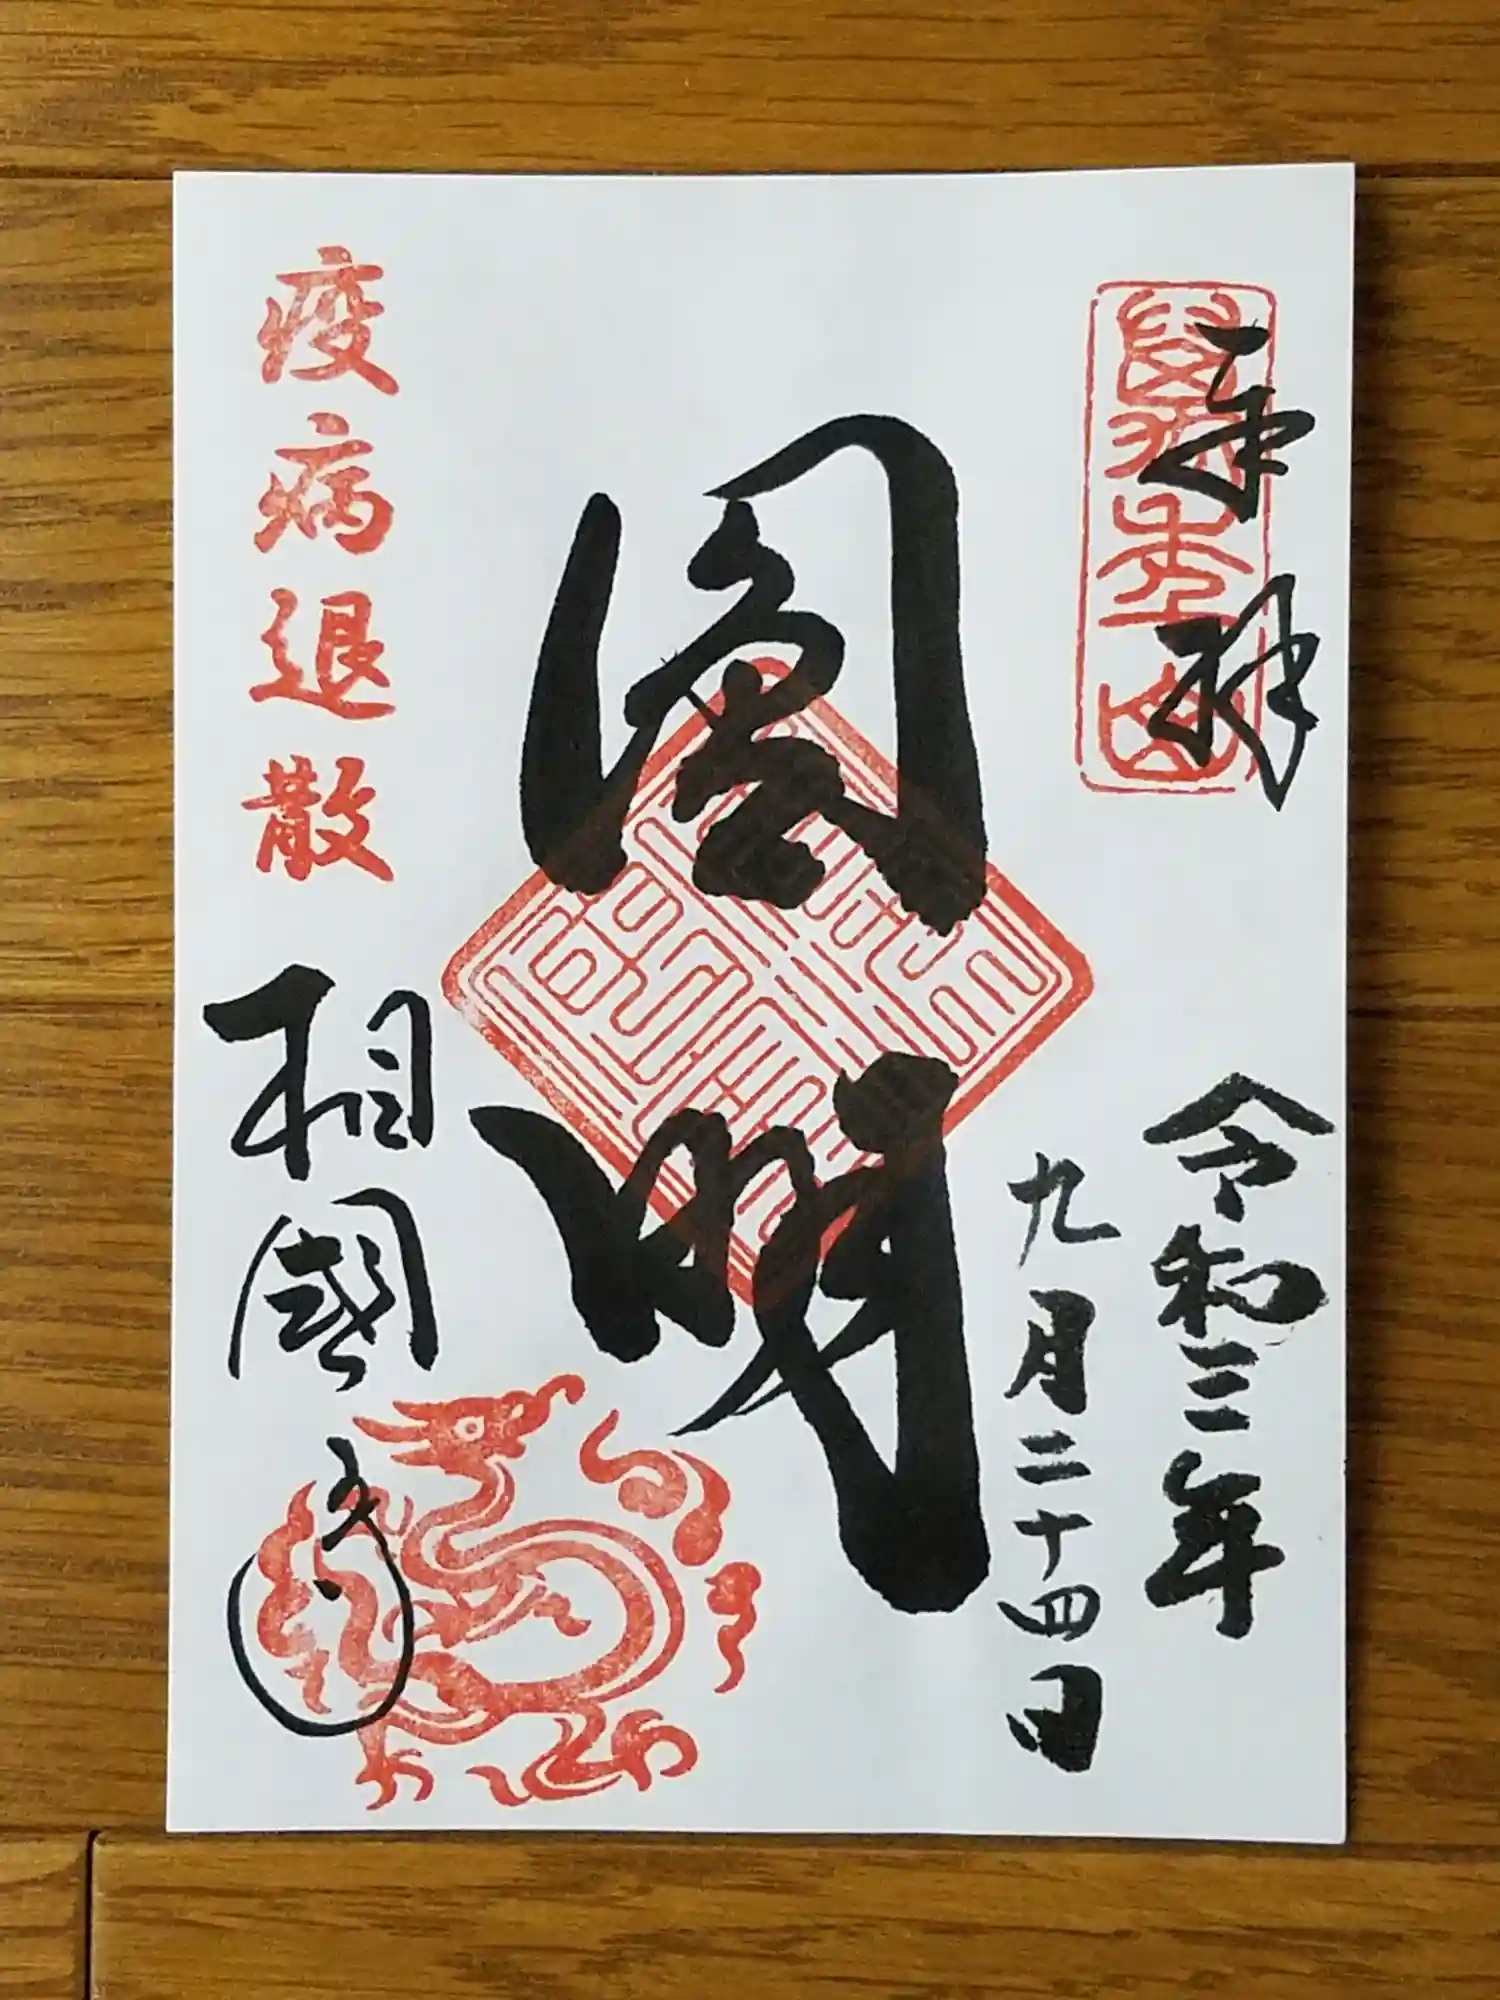 奉拝
萬年山
令和三年
九月二十四日
圓明
疫病退散
相國寺